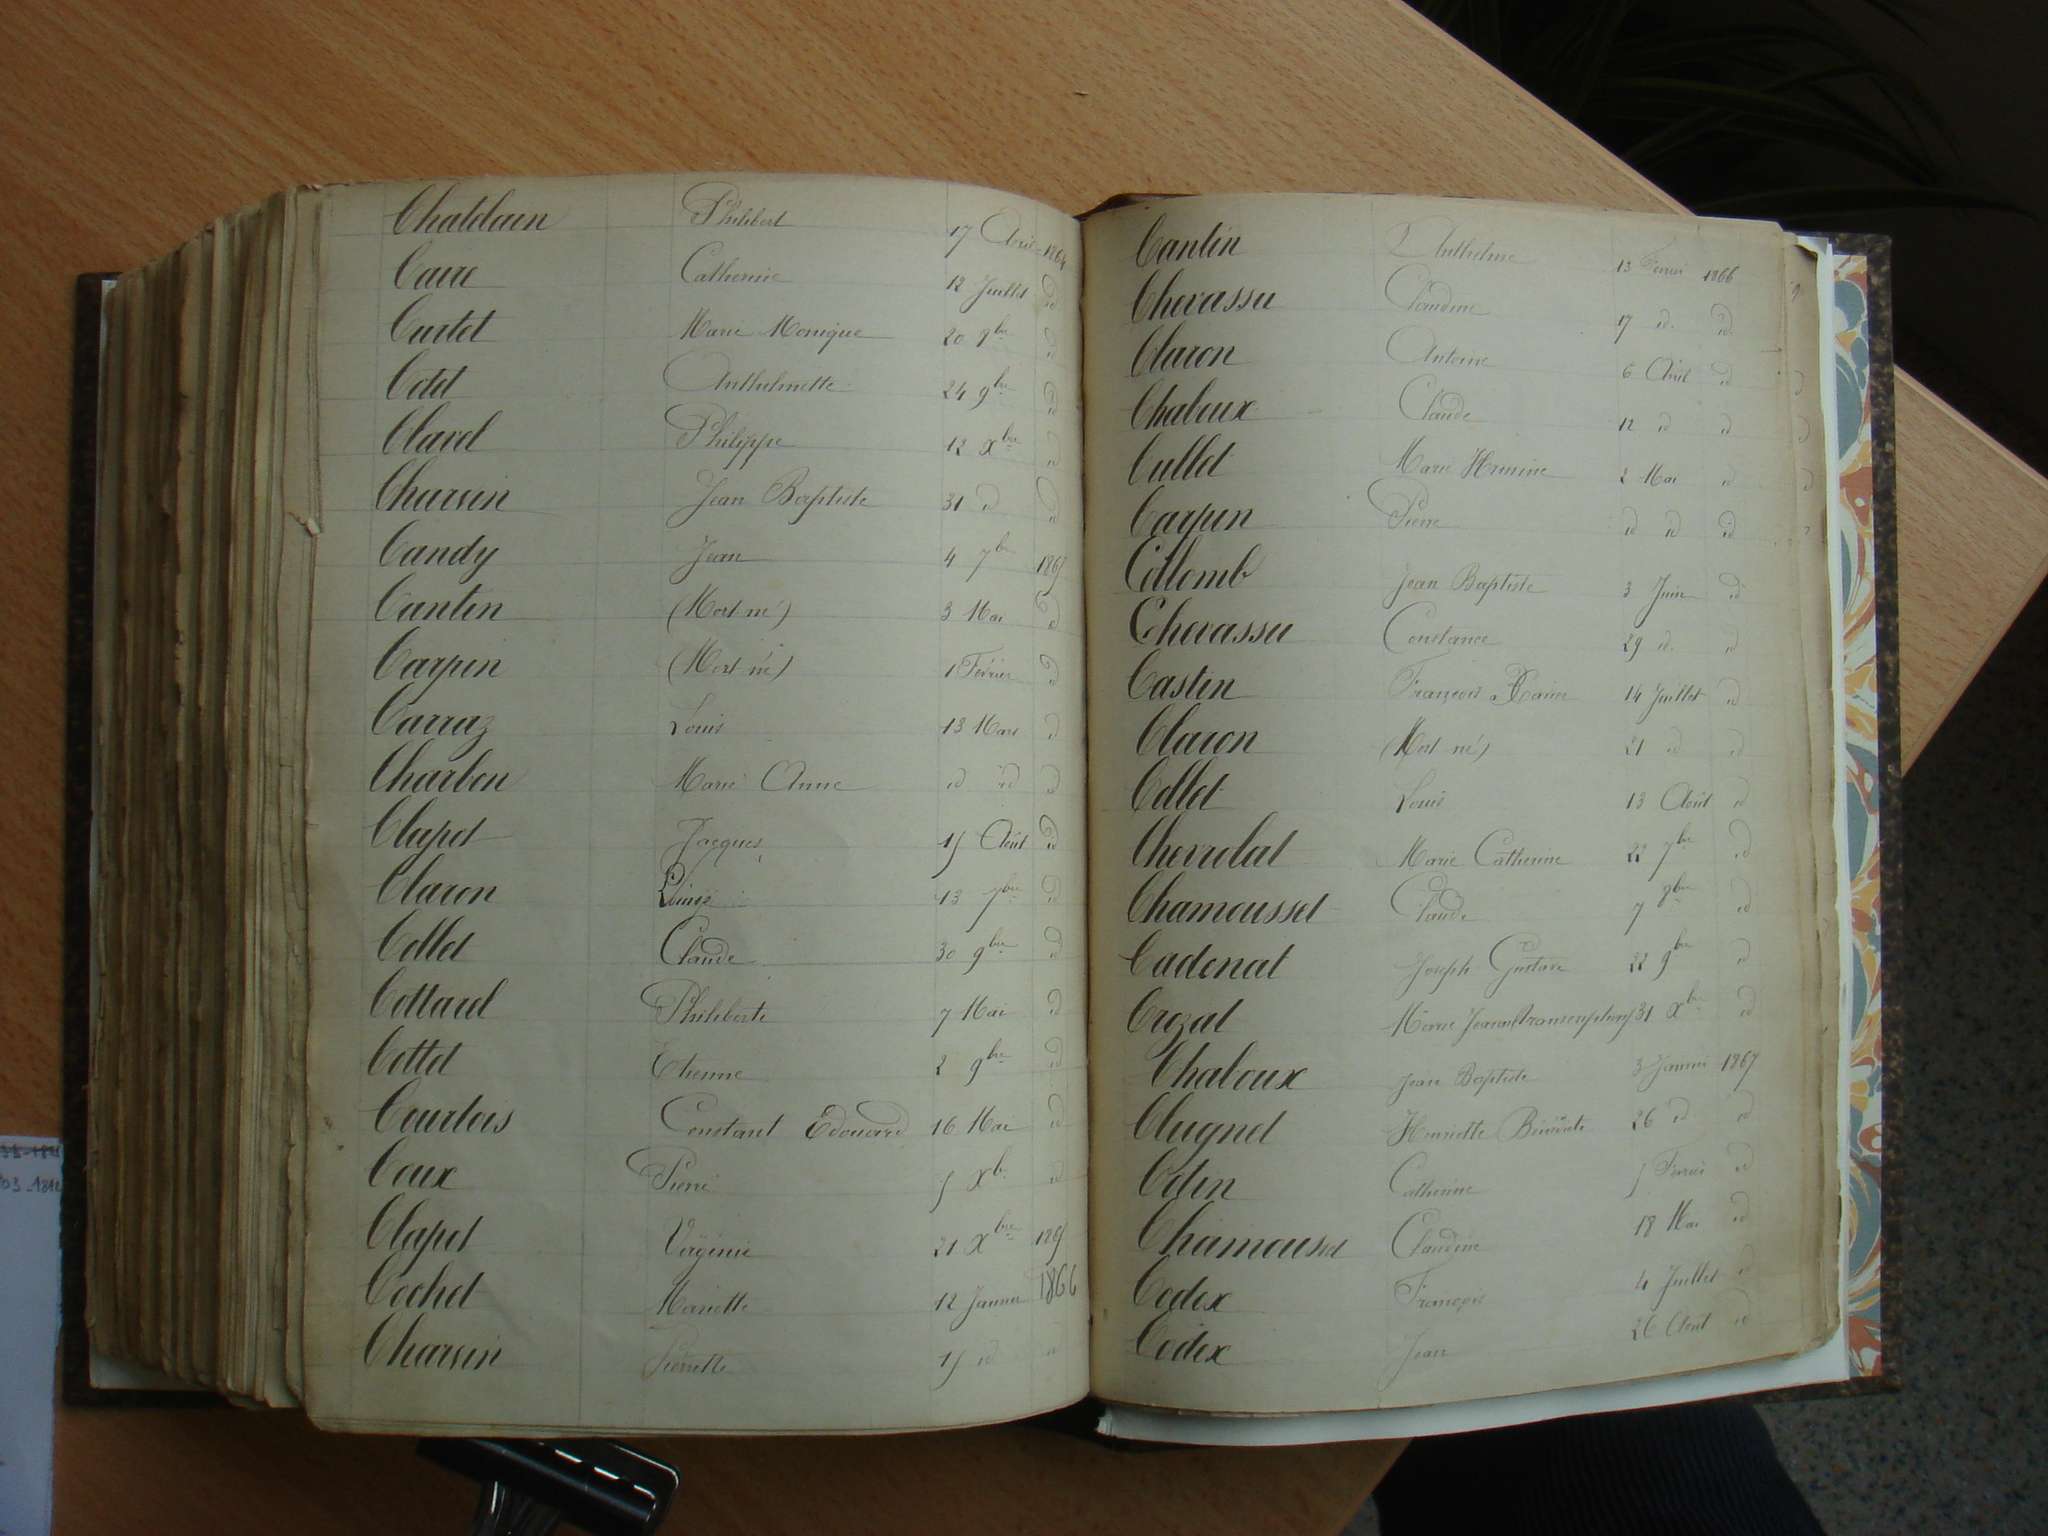 Chatelain Philibert 17 Avril 1864
Caire Catherine 12 Juillet id
Curtet Marie Monique 20 9bre id
Cotet Anthelmette 24 9bre id
Clavel Philippe 12 Xbre id
Charvin Jean Baptiste 31 id id
Candy Jean 4 7bre 1865
Cantin (Mort né) 3 Mai id
Carpin (Mort né) 1 Février id
Carraz Louis 13 Mars id
Charbon Marie Anne id id id
Clapet Jacques 15 Août id
Claron Louise 13 7bre id
Collet Claude 30 9bre id
Cottarel Philiberte 7 Mai id
Cottet Etienne 2 9bre id
Courtois Constant Edouard 16 Mai id
Coux Pierre 5 Xbre id
Clapet Virginie 21 Xbre 1865
Cochet Mariette 12 Janvier 1866
Charvin Pierrette 15 id id
Cantin Anthelme 13 Février 1866
Chevassu Claudine 17 id. id
Claron Antoine 6 Avril id
Chaloux Claude 12 id id
Cullet Marie Hermine 2 Mai id
Carpin Pierre id id id
Collomb Jean Baptiste 3 Juin id
Chevassu Constance 29 id. id
Castin François Marie 14 Juillet id
Claron (Mort né) 21 id id
Collet Louis 13 Août id
Chevrolat Marie Catherine 22 7bre id
Chamousset Claude 7 9bre id
Cadonat Joseph Gustave 22 9bre id
Crozat Marie Jeanne (transcription) 31 Xbre id
Chaloux Jean Baptiste 3 Janvier 1867
Clugnet Henriette Benoite 26 id id
Colin Catherine 5 Février id
Chamousset Claudine 18 Mai id
Codex François 4 Juillet id
Codex Jean 26 Août id